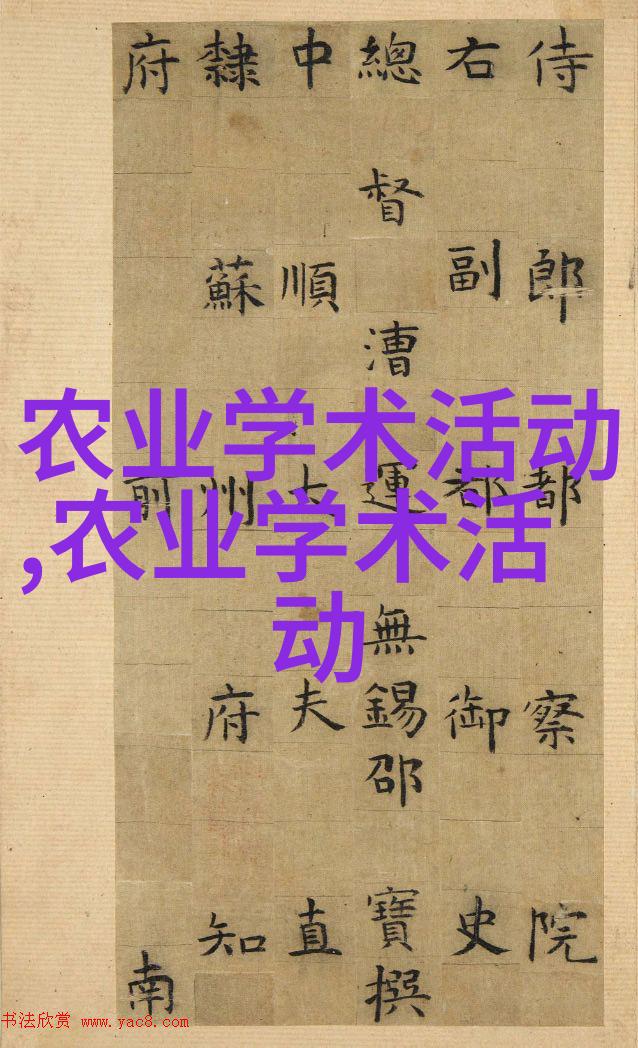 侍郎都察院
右副都御史
總督漕運無錫邵寶撰
中順大夫直
隸蘇州府知
府前南
农业学术活动
,农业学术活
动
书法欣赏 www.yac8.com